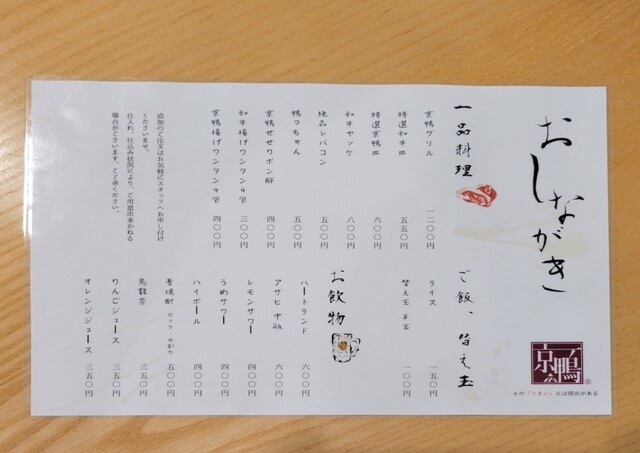 おしながき
一品料理
京鴨グリル 一二〇〇円
特選和牛皿 五五〇円
特選京鴨皿 六〇〇円
和牛ヤッケ 八〇〇円
絶品レバコン 五〇〇円
鴨っちゃん 五〇〇円
京鴨せせりポン酢 四〇〇円
和牛揚げワンタン4個 三〇〇円
京鴨揚げワンタン4個 四〇〇円
追加のご注文はお気軽にスタッフへお申し付け
くださいませ。
仕入れ、仕込み状況により、ご用意出来かねる
場合がございます。ご了承ください。
ご飯、替え玉
ライス 一五〇円
替え玉 半玉 一〇〇円
お飲物
ハートランド 六〇〇円
アサヒ 中瓶 六〇〇円
レモンサワー 四〇〇円
うめサワー 四〇〇円
ハイボール 四〇〇円
麦焼酎 ロック・水割り 五〇〇円
烏龍茶 三五〇円
りんごジュース 三五〇円
オレンジジュース 三五〇円
京鴨
その「うまい」には理由がある